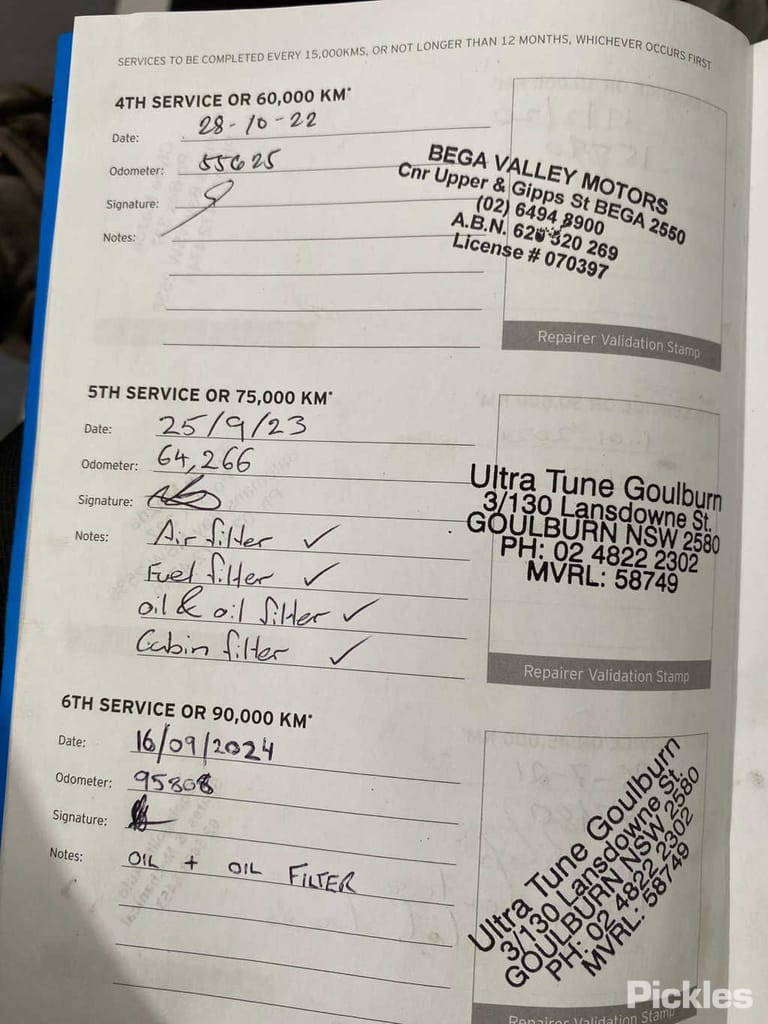 SERVICES TO BE COMPLETED EVERY 15,000KMS, OR NOT LONGER THAN 12 MONTHS, WHICHEVER OCCURS FIRST
4TH SERVICE OR 60,000 KM*
Date: 28-10-22
Odometer: 55625
Signature:
Notes:
BEGA VALLEY MOTORS
Cnr Upper & Gipps St BEGA 2550
(02) 6494 8900
A.B.N. 620 520 269
License # 070397
Repairer Validation Stamp
5TH SERVICE OR 75,000 KM*
Date: 25/9/23
Odometer: 64,266
Signature:
Notes: Air filter ✓
Fuel filter ✓
oil & oil filter ✓
Cabin filter ✓
Ultra Tune Goulburn
3/130 Lansdowne St.
GOULBURN NSW 2580
PH: 02 4822 2302
MVRL: 58749
Repairer Validation Stamp
6TH SERVICE OR 90,000 KM*
Date: 16/09/2024
Odometer: 95808
Signature:
Notes: OIL + OIL FILTER
Ultra Tune Goulburn
3/130 Lansdowne St.
GOULBURN NSW 2580
PH: 02 4822 2302
MVRL: 58749
Repairer Validation Stamp
Pickles